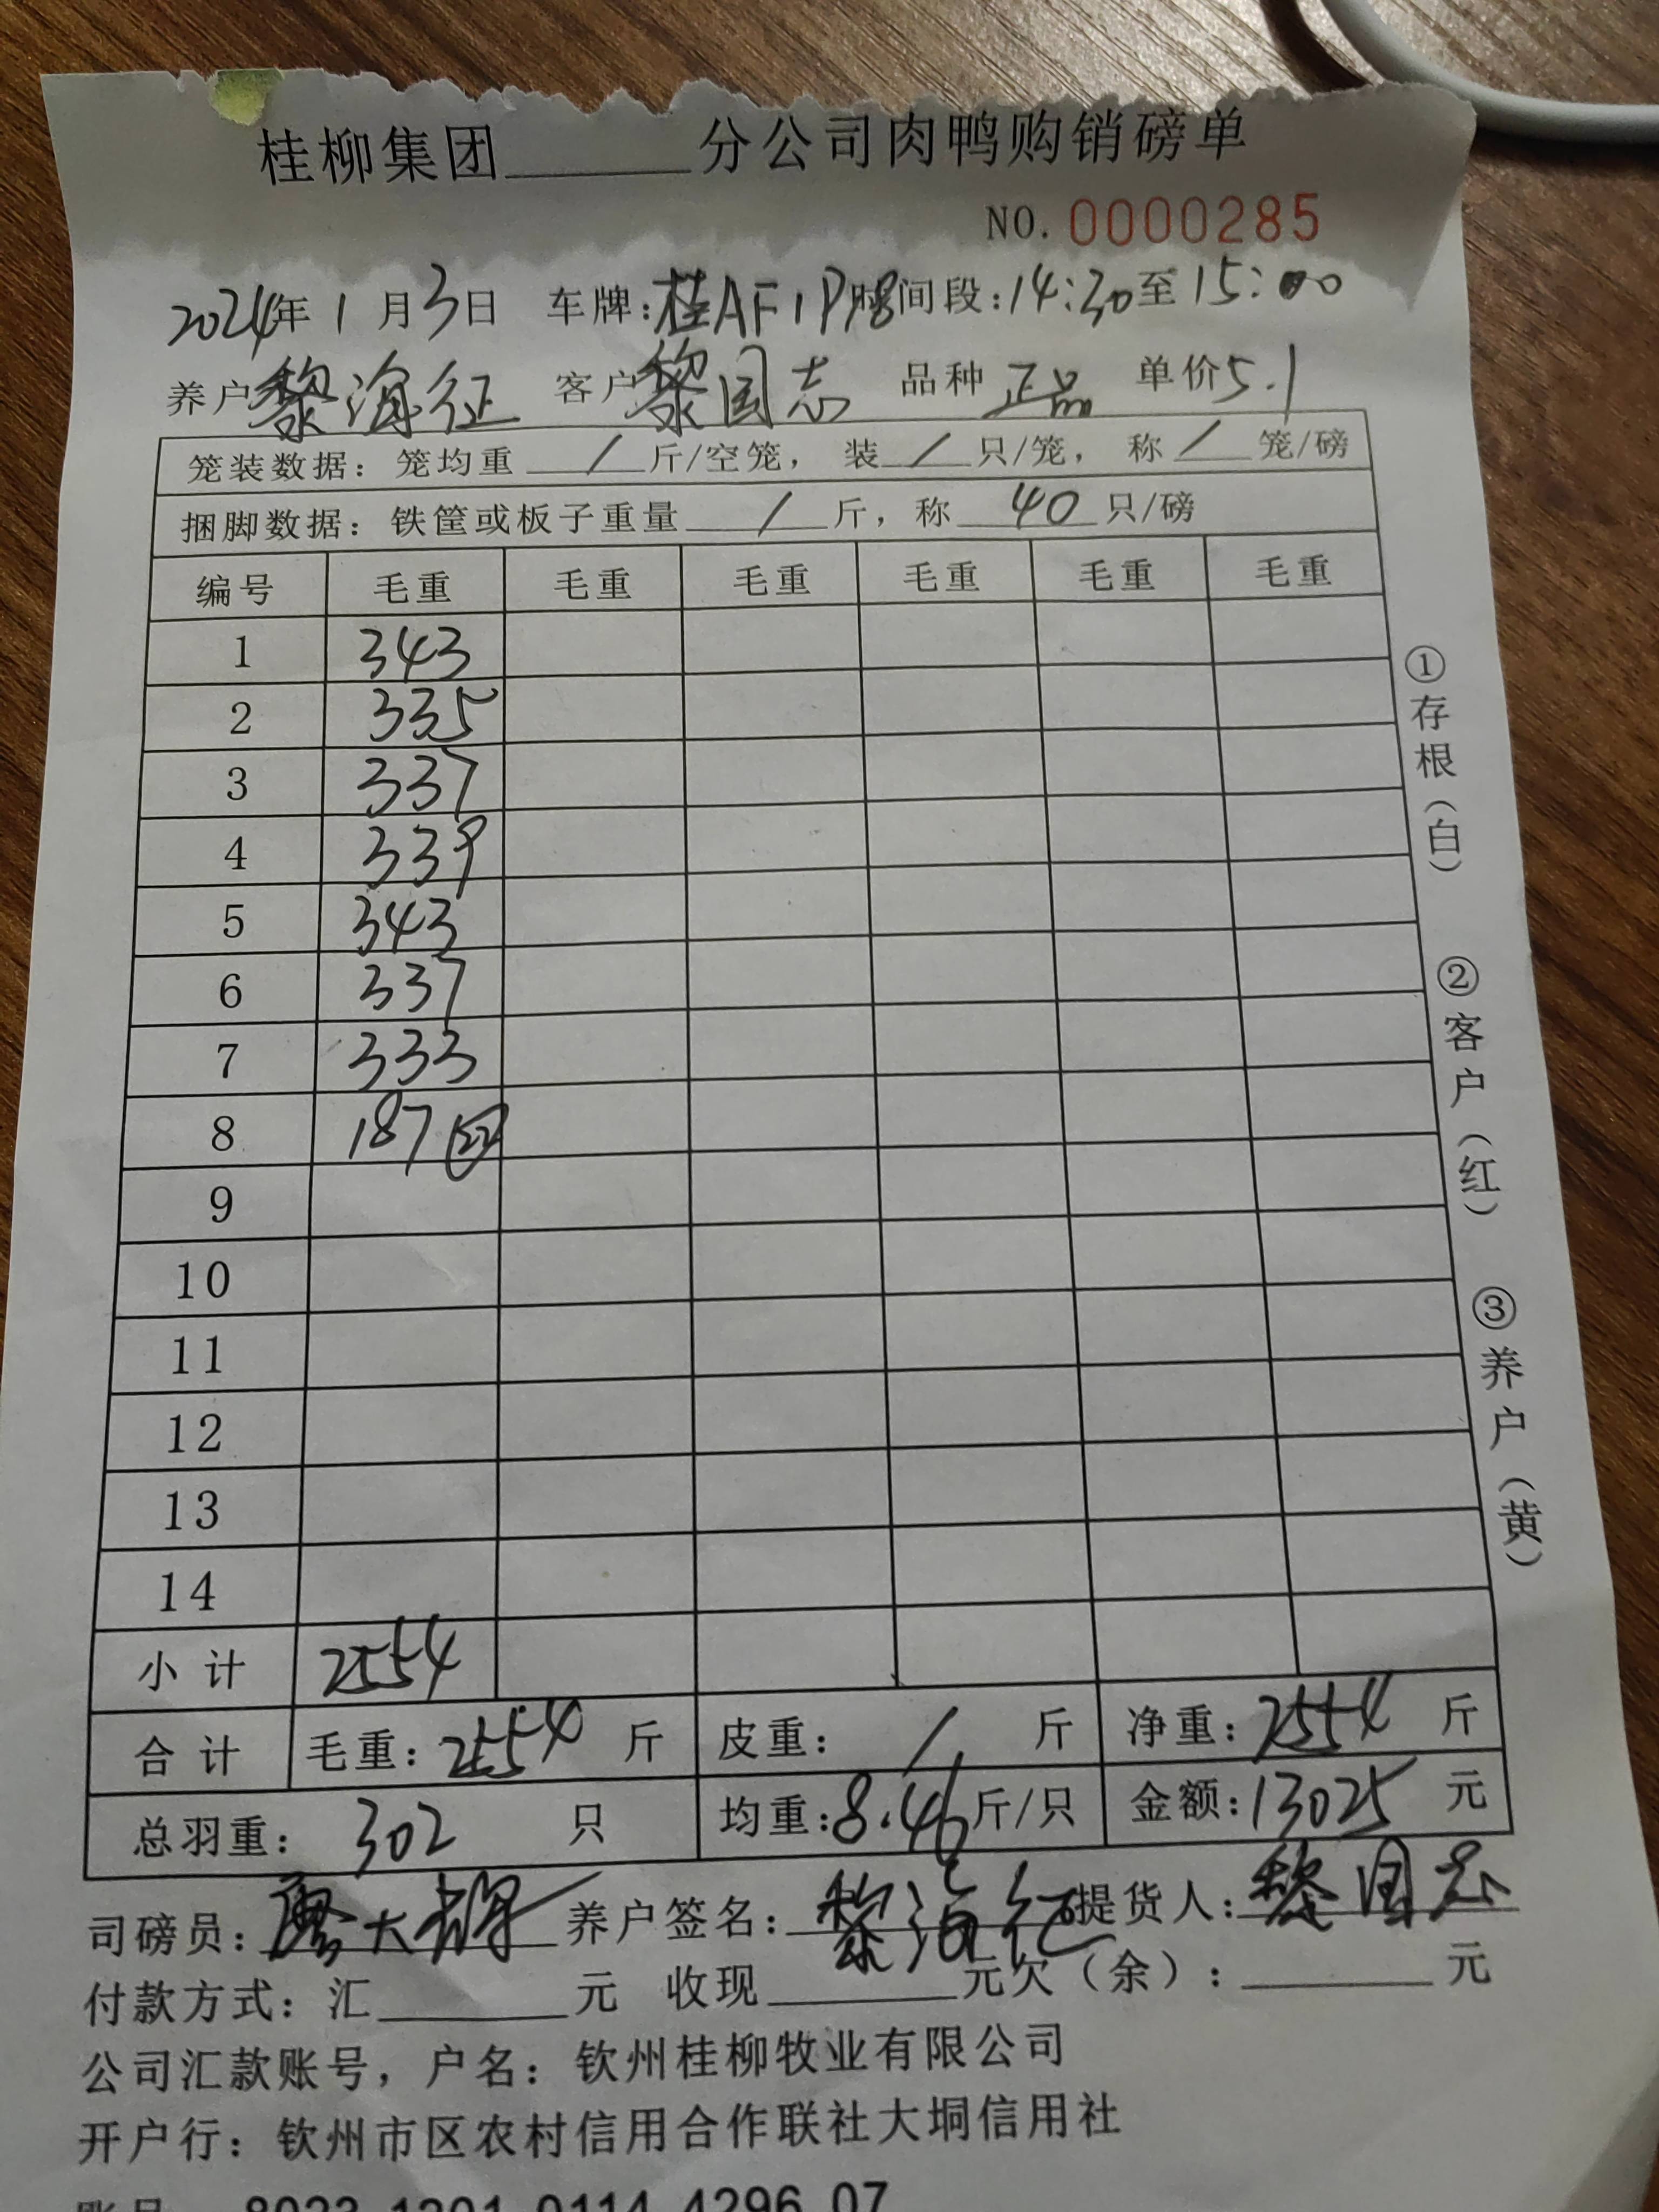 桂柳集团______分公司肉鸭购销磅单
NO. 0000285
2024年1月3日 车牌:桂AF1P18时间段:14:30至15:00
养户黎海征 客户黎国志 品种正品 单价5.1
笼装数据:笼均重 / 斤/空笼,装 / 只/笼,称 / 笼/磅
捆脚数据:铁筐或板子重量 / 斤,称 40 只/磅
编号 毛重 毛重 毛重 毛重 毛重 毛重
1 343
2 335
3 337
4 339
5 343
6 337
7 333
8 187 22
9
10
11
12
13
14
小计 2554
合计 毛重:2554 斤 皮重: / 斤 净重:2554 斤
总羽重: 302 只 均重:8.46斤/只 金额:13025 元
司磅员: 大辉 养户签名:黎海征 提货人:黎国志
付款方式:汇______元 收现______元欠(余):______元
公司汇款账号,户名:钦州桂柳牧业有限公司
开户行:钦州市区农村信用合作联社大垌信用社
8023 1201 0114 4296 07
①存根(白)
②客户(红)
③养户(黄)